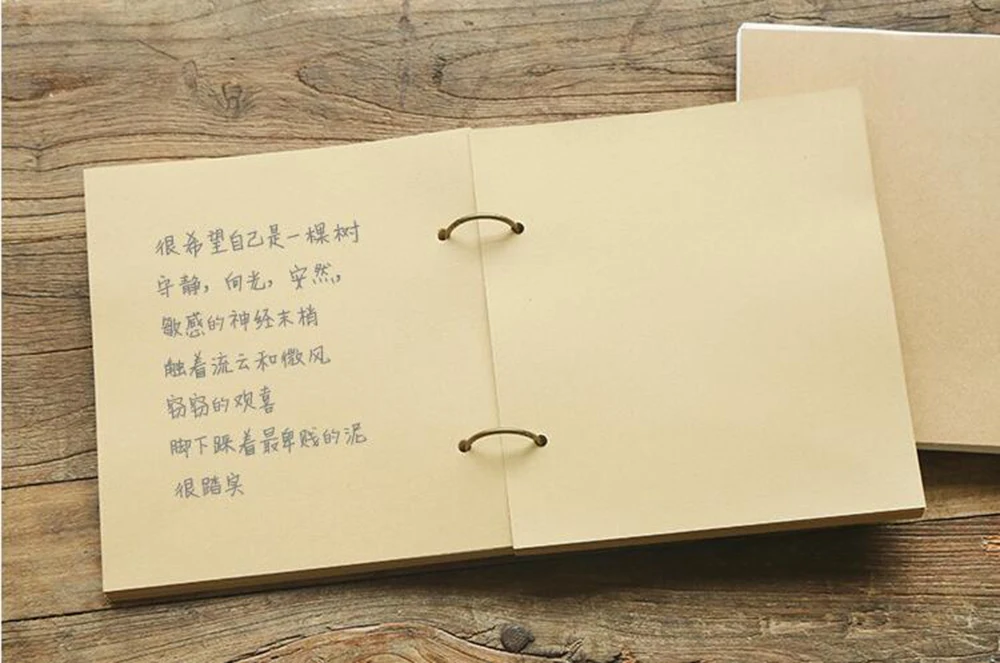 很希望自己是一棵树
守静，向光，安然，
敏感的神经末梢
触着流云和微风
窃窃的欢喜
脚下踩着最卑贱的泥
很踏实